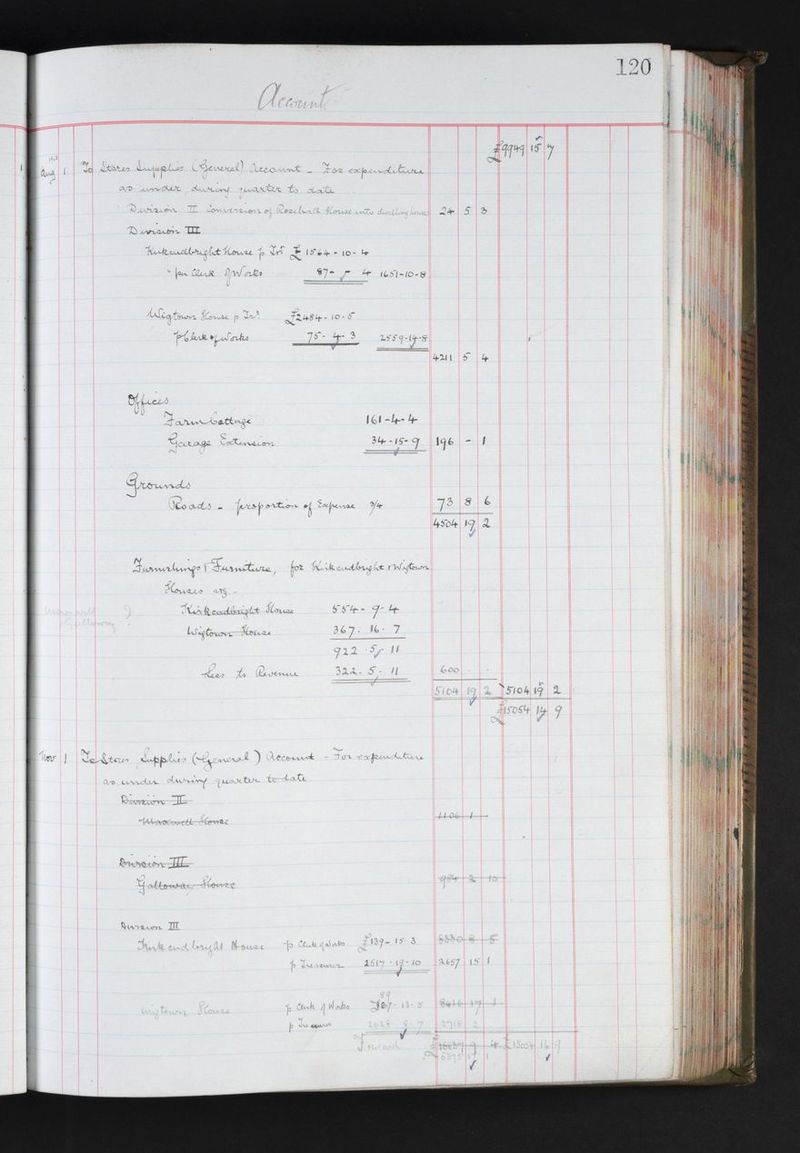 120
Account
£9949 15 7
Aug 1 To Stores Supplies (General) Account - For expenditure
as under during quarter to date
Division II Conversion of Rosehall House into dwelling houses 24 5 3
Division III
Kirkcudbright House p Trs £1564-10-4
" per Clerk of Works 87- - 4 1651-10-8
Wigtown House p Trs £2484-10-5
p Clerk of Works 75-4-3 2559-14-8
4211 5 4
Offices
Farm Cottage 161-4-4
Garage Extension 34-15-9 196 - 1
Grounds
Roads - proportion of Expense 3/4 73 8 6
4504 19 2
Furnishings & Furniture, for Kirkcudbright & Wigtown
Houses
Maxwell ?
Galloway ?
Kirkcudbright House 554-9-4
Wigtown House 367-16-7
922-5-11
Less to Revenue 322-5-11 600 - -
5104 19 2 5104 19 2
£15054 14 9
Nov 1 To Stores Supplies (General) Account - For expenditure
as under during quarter to date
Division II
Maxwell House 1106 1 -
Division III
Galloway House 984 2 10
Division III
Kirkcudbright House p Clerk of Works £139-15-3 8 5
p Treasurer 2517-19-10 2657 15 1
Wigtown House p Clerk of Works 89 - 13 - 5 8416 17 1
p Treasurer 2628 8 7 2718 2
Forward £15054 14 9